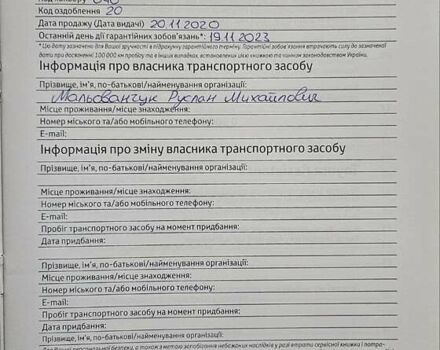 Код оздоблення 20
Дата продажу (Дата видачі) 20.11.2020
Останній день дії гарантійних зобов'язань*: 19.11.2023
* Цю дату зазначено для Вашої зручності в підрахунку гарантійного терміну. Гарантійні зобов'язання втрачають силу до зазначеної
дати при досягненні 100 000 км пробігу та в інших випадках, встановлених цією книжкою та чинним законодавством України.
Інформація про власника транспортного засобу
Прізвище, ім'я, по-батькові/найменування організації:
Мальованчук Руслан Михайлович
Місце проживання/місце знаходження:
Номер міського та/або мобільного телефону:
E-mail:
Інформація про зміну власника транспортного засобу
Прізвище, ім'я, по-батькові/найменування організації:
Місце проживання/місце знаходження:
Номер міського та/або мобільного телефону:
E-mail:
Пробіг транспортного засобу на момент придбання:
Дата придбання:
Прізвище, ім'я, по-батькові/найменування організації:
Місце проживання/місце знаходження:
Номер міського та/або мобільного телефону:
E-mail:
Пробіг транспортного засобу на момент придбання:
Дата придбання:
Прізвище, ім'я, по-батькові/найменування організації: